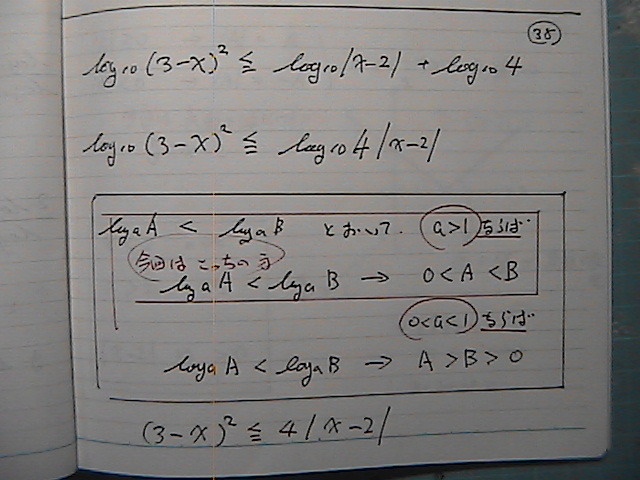 38
log₁₀(3-x)² ≦ log₁₀|x-2| + log₁₀4
log₁₀(3-x)² ≦ log₁₀4|x-2|
logₐA < logₐB において. a>1 ならば
今回はこっちの方
logₐA < logₐB → 0<A<B
0<a<1 ならば
logₐA < logₐB → A>B>0
(3-x)² ≦ 4|x-2|